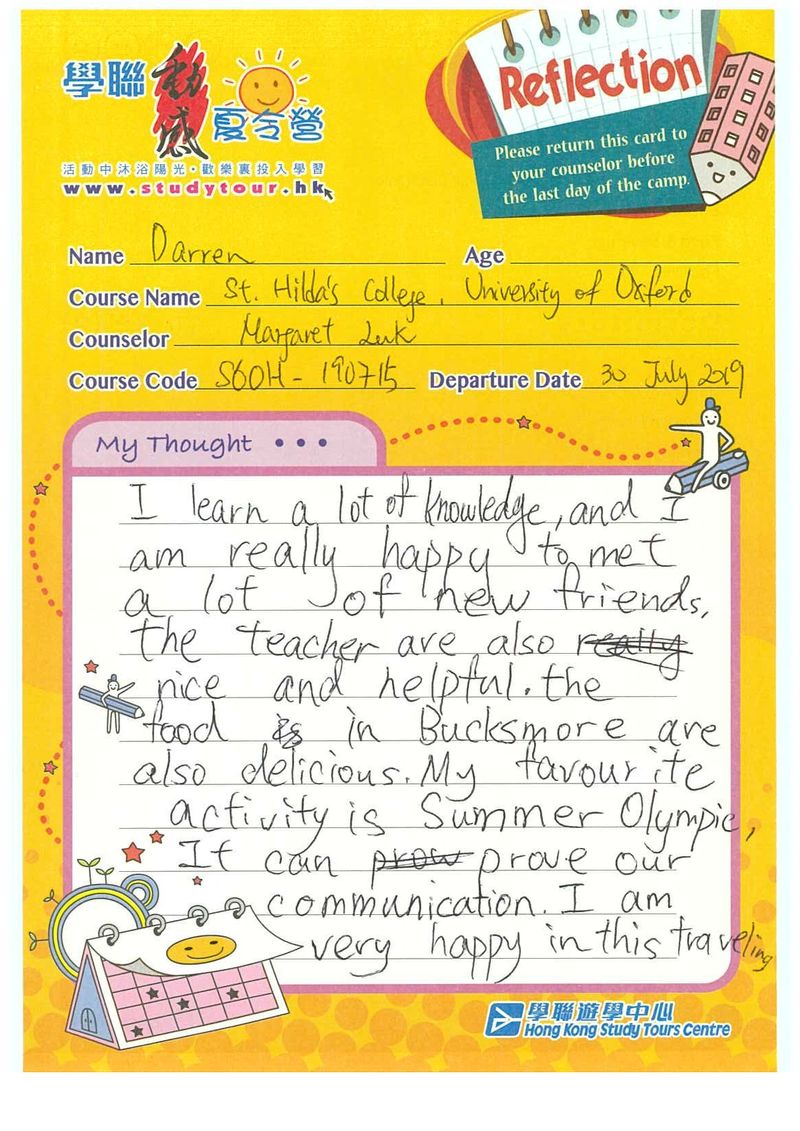 學聯 動感 夏令營
活動中沐浴陽光・歡樂裏投入學習
www.studytour.hk
Reflection
Please return this card to
your counselor before
the last day of the camp.
Name Darren Age
Course Name St. Hilda's College, University of Oxford
Counselor Margaret Luk
Course Code S60H - 190715 Departure Date 30 July 2019
My Thought • • •
I learn a lot of knowledge, and I
am really happy to met
a lot of new friends,
the teacher are also really
nice and helpful. the
food is in Bucksmore are
also delicious. My favourite
activity is Summer Olympic,
It can prow prove our
communication. I am
very happy in this traveling
學聯遊學中心
Hong Kong Study Tours Centre